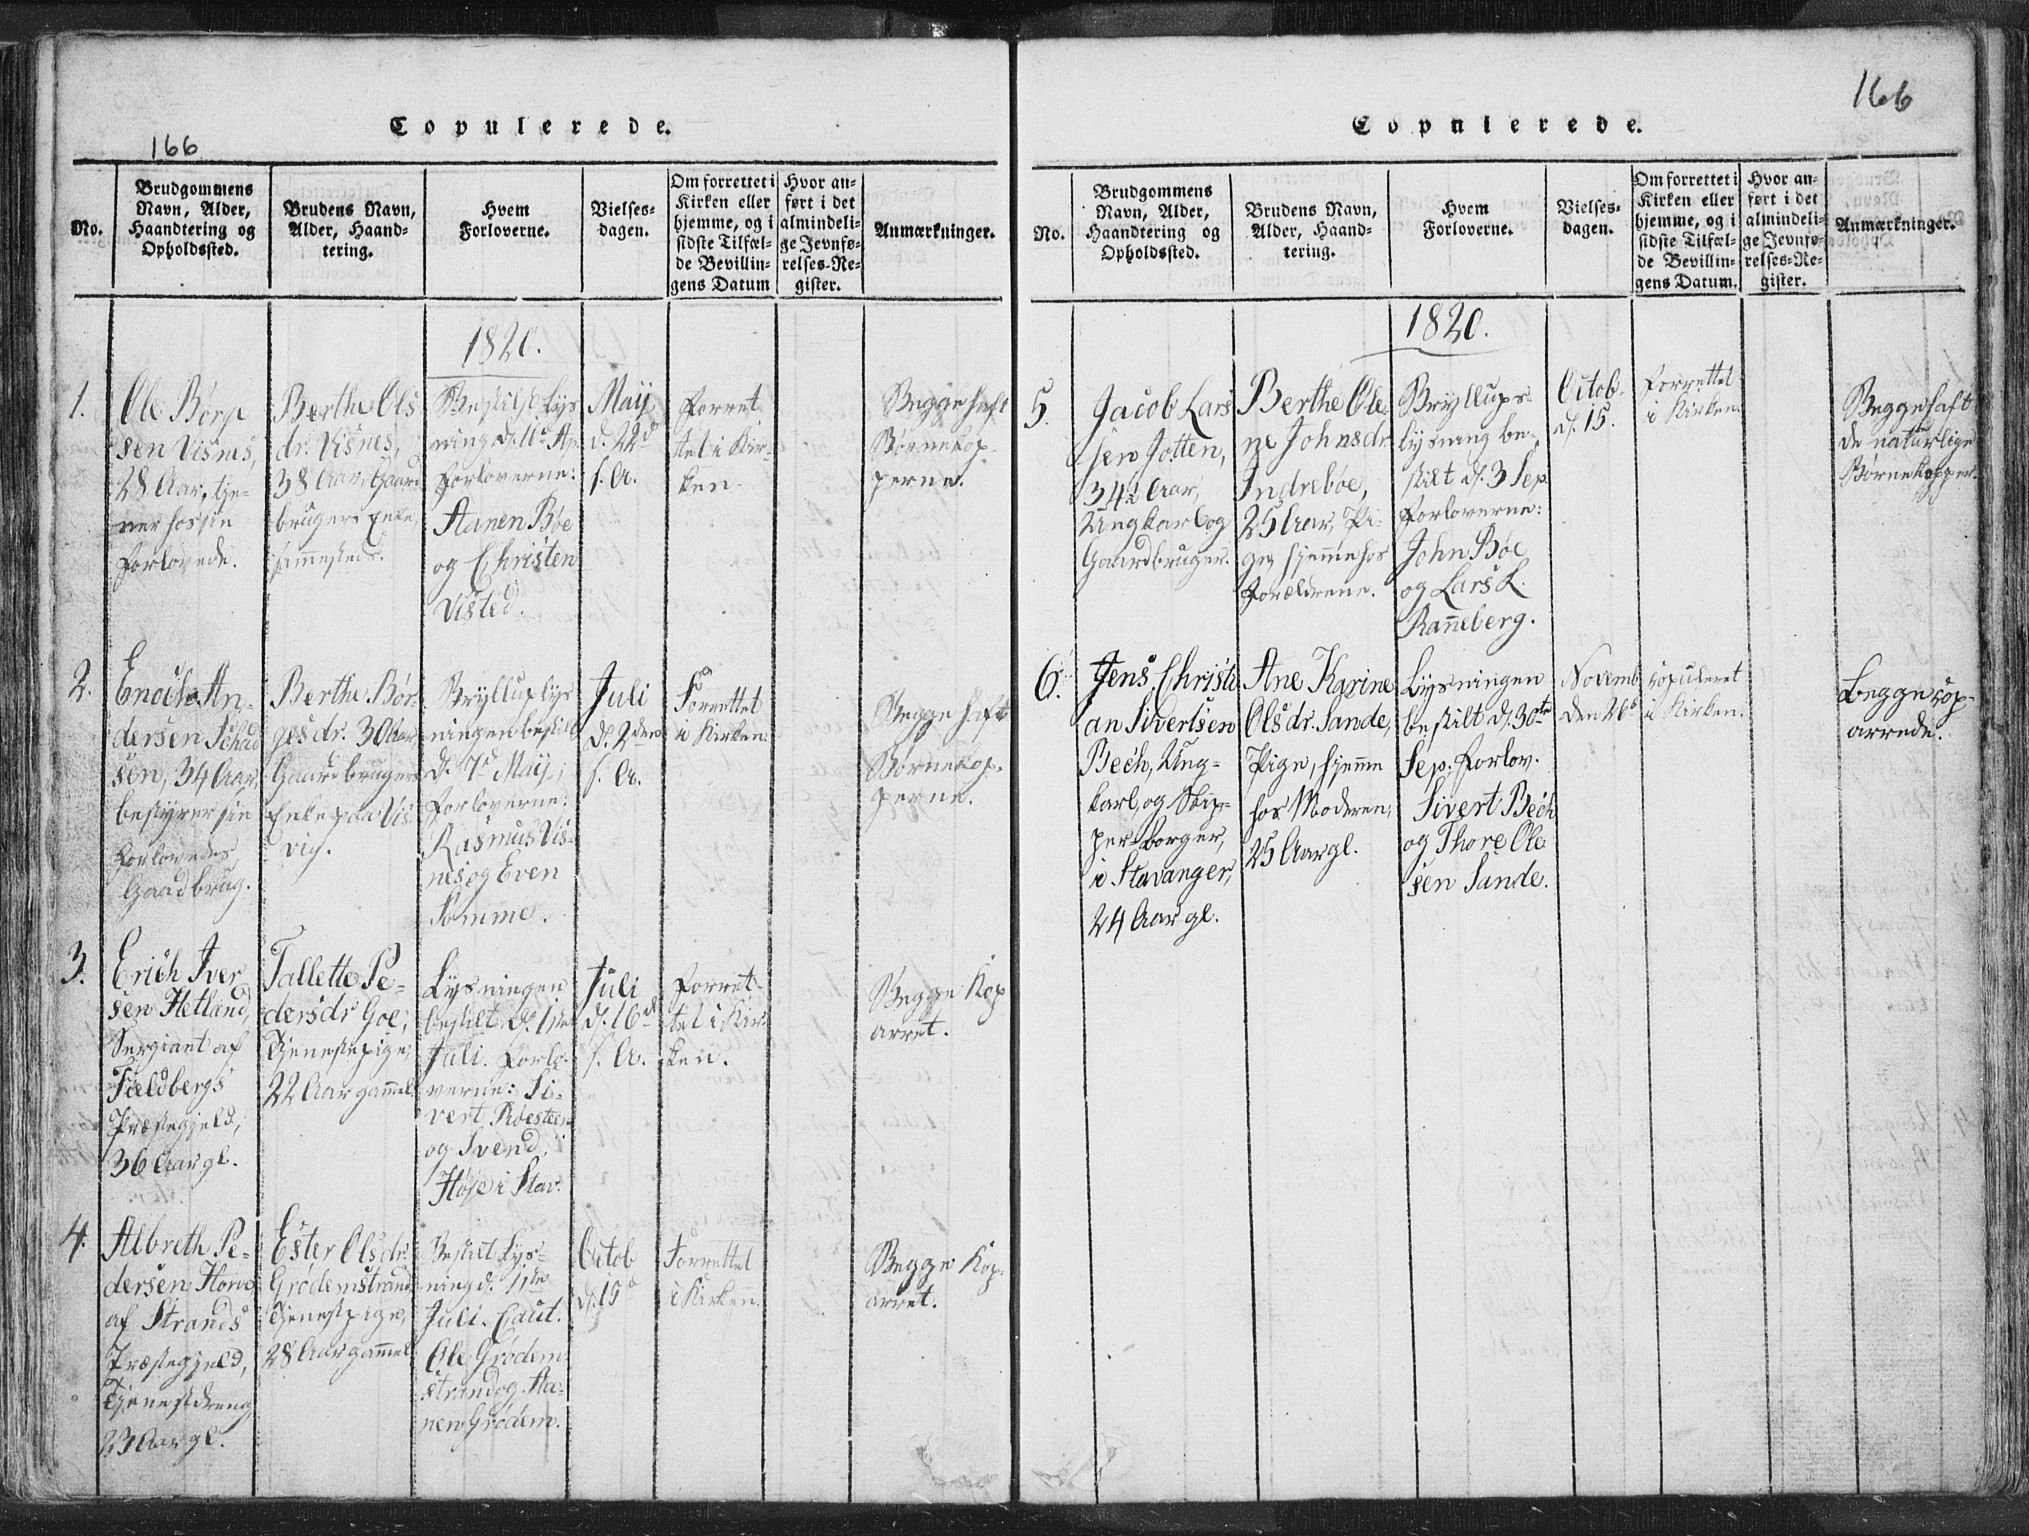 Copulerede.
166
No.
Brudgommens
Navn, Alder,
Haandtering og
Opholdssted.
Brudens Navn,
Alder, Haand-
tering.
Hvem
Forloverne.
Vielses-
dagen.
Om forrettet i
Kirken eller
hjemme, og i
sidste Tilfæl-
de Bevillin-
gens Datum
Hvor an-
ført i det
almindeli-
ge Jevnfø-
relses-Re-
gister.
Anmærkninger.
1820.
1.
Ole Børge
sen Visnes,
28 Aar, tje-
ner hos sin
Forlovede.
Berthe Ols
dr. Visnes,
38 Aar, Gaard
brugers Enke,
sammesteds.
Bestilt Lys
ning d.
Forloverne:
Aanen Bøe
og Christen
Visted.
Maij
d. 22d
s. A.
Forret-
tet i Kir-
ken.
Begge haft
Børnekop-
perne.
2.
Enoch An-
dersen Schad
sen, 34 Aar,
bestyrer sin
Forlovedes
Gaardbrug.
Berthe Bør-
gesdr. 30 Aar
Gaardbrugers
Enke paa Vis
vig.
Bryllupslys
ningen bestilt
d. 7d Maij;
Forloverne:
Rasmus Vis-
nes og Even
Somme.
Juli
d. 2den
s. A.
Forrettet
i Kirken.
Begge haft
Børnekop-
perne.
3.
Erich Iver
sen Hetland,
Sergiant af
Fieldbergs
Præstegjeld,
36 Aar gl.
Tallette Pe-
dersdr Goe,
Tjenestepige,
22 Aar gammel
Lysningen
bestilt d. 1ste
Juli. Forlo-
verne: Si-
vert Roesteen
og Svend
Høje i Stav.
Juli
d. 16d
s. A.
Forret-
tet i Kir-
ken.
Begge Kop
arret.
4.
Albreth Pe-
dersen Horve
af Strands
Præstegjeld,
Tjenestdreng
23 Aar gl.
Ester Olsdr.
Grødemstrand
Tjenestpige,
28 Aar gammel
Bestilt Lys-
ning d. 11te
Juli. Caut.
Ole Grødem-
strand og Aa-
nen Grødem.
Octob
d. 15d
Forrettet
i Kirken.
Begge Kop-
arret.
Copulerede.
166
No.
Brudgommens
Navn, Alder,
Haandtering og
Opholdssted.
Brudens Navn,
Alder, Haand-
tering.
Hvem
Forloverne.
Vielses-
dagen.
Om forrettet i
Kirken eller
hjemme, og i
sidste Tilfæl-
de Bevillin-
gens Datum.
Hvor an-
ført i det
almindeli-
ge Jevnfø-
relses-Re-
gister.
Anmærkninger.
1820.
5.
Jacob Lars
sen Jotten,
34 Aar,
Ungkarl og
Gaardbruger.
Berthe Ole-
ne Johnsdr
Indrebøe,
25 Aar, Pi-
ge, hjemme hos
Forældrene.
Bryllups-
lysning be-
stilt d. 3 Sep.
Forloverne:
John Bøe
og Lars L.
Ranneberg.
Octob.
d. 15.
Forrettet
i Kirken.
Begge haft
de naturlige
Børnekopper.
6.
Jens Christi
an Sivertsen
Bech, Ung-
karl, og Skip-
per Borger,
i Stavanger,
24 Aar gl.
Ane Karine
Olsdr. Sande,
Pige, hjemme
hos Moderen,
25 Aar gl.
Lysningen
bestilt d. 30te
Sep. Forlov.
Sivert Bech
og Thore Ole
sen Sande.
Novemb
den 26d
copuleret
i Kirken.
Begge cop-
arrede.